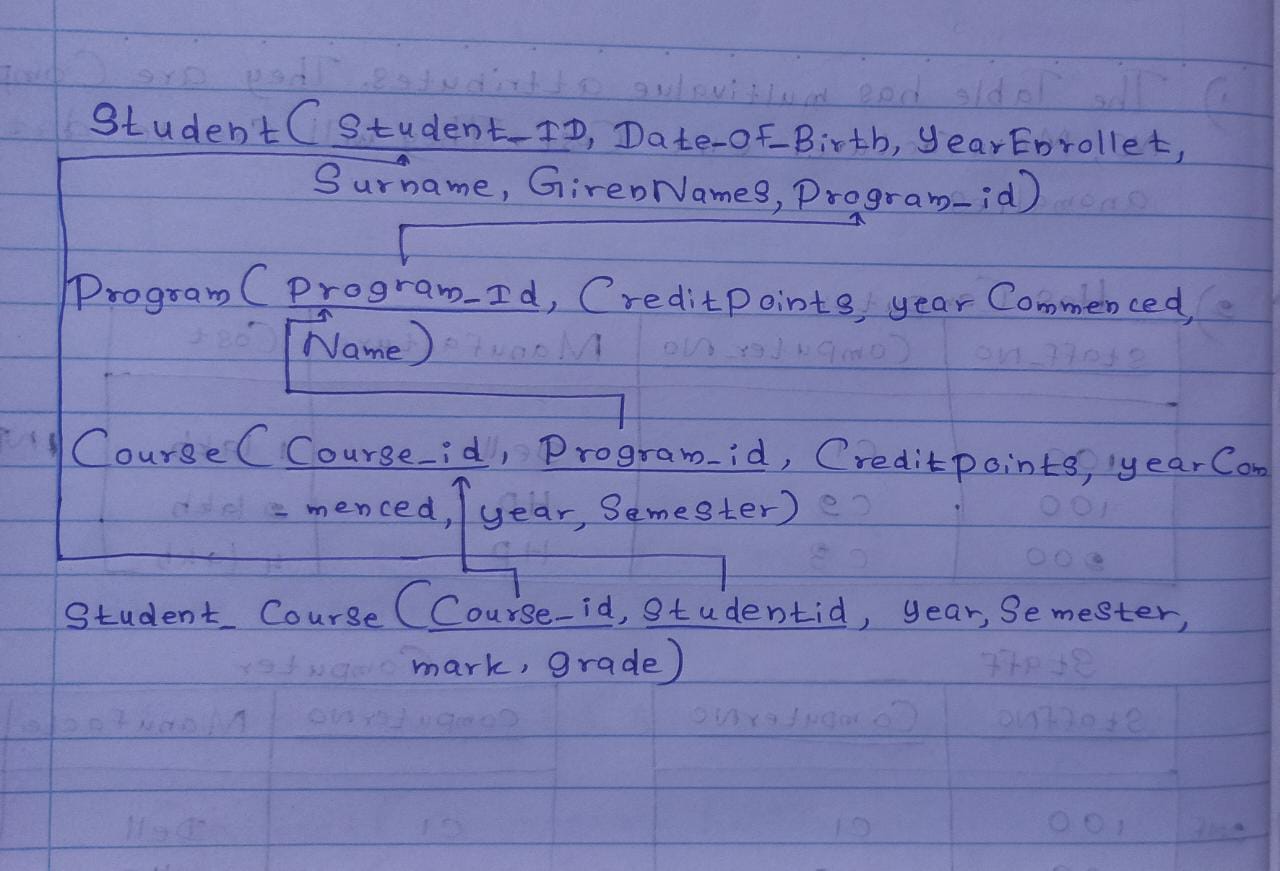 Student ( Student_ID, Date_OF_Birth, YearEnrollet,
Surname, GivenNames, Program_id)
Program ( Program_Id, CreditPoints, year Commenced,
Name)
Course ( Course_id, Program_id, Creditpoints, yearCom
= menced, year, Semester)
Student_ Course (Course_id, Studentid, year, Semester,
mark, grade)